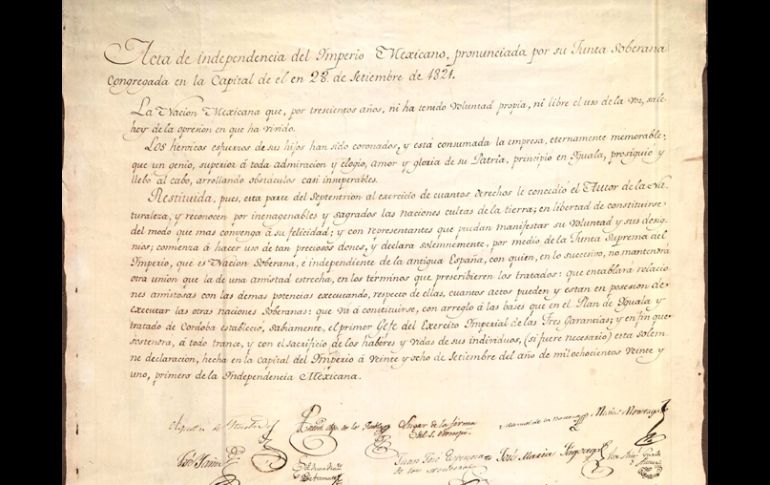 Acta de independencia del Imperio Mexicano, pronunciada por su Junta Soberana
congregada en la Capital de él en 28 de Setiembre de 1821.
La Nacion Mexicana que, por trescientos años, ni ha tenido voluntad propia, ni libre el uso de la voz, sale
hoy de la opresion en que ha vivido.
Los heroicos esfuerzos de sus hijos han sido coronados, y está consumada la empresa, eternamente memorable,
que un genio, superior á toda admiracion y elogio, amor y gloria de su Patria, principió en Iguala, prosiguió y
llebó al cabo, arrollando obstáculos casi insuperables.
Restituida, pues, esta parte del Septentrion al exercicio de cuantos derechos le concedió el Autor de la Na-
turaleza, y reconocen por inenagenables y sagrados las naciones cultas de la tierra; en libertad de constituirse
del modo que mas convenga á su felicidad; y con representantes que puedan manifestar su voluntad y sus desig-
nios; comienza á hacer uso de tan preciosos dones, y declara solemnemente, por medio de la Junta Suprema del
Imperio, que es Nacion Soberana, é independiente de la antigua España, con quien, en lo sucesivo, no mantendrá
otra union que la de una amistad estrecha, en los términos que prescribieren los tratados: que entablará relacio
nes amistosas con las demas potencias executando, respecto de ellas, cuantos actos pueden y estan en posesion de
executar las otras naciones Soberanas: que vá á constituirse, con arreglo á las bases que en el Plan de Iguala y
tratado de Cordoba estableció, sabiamente, el primer Gefe del Exercito Imperial de las Tres Garantias; y en fin que
sostendrá, á todo trance, y con el sacrificio de los haberes y vidas de sus individuos, (si fuere necesario) esta solem-
ne declaracion, hecha en la Capital del Imperio á veinte y ocho de Setiembre del año de mil ochocientos veinte y
uno, primero de la Independencia Mexicana.
Agustin de Iturbide Lugar de la firma
del S.
Juan José Espinosa
de los Monteros José Maria